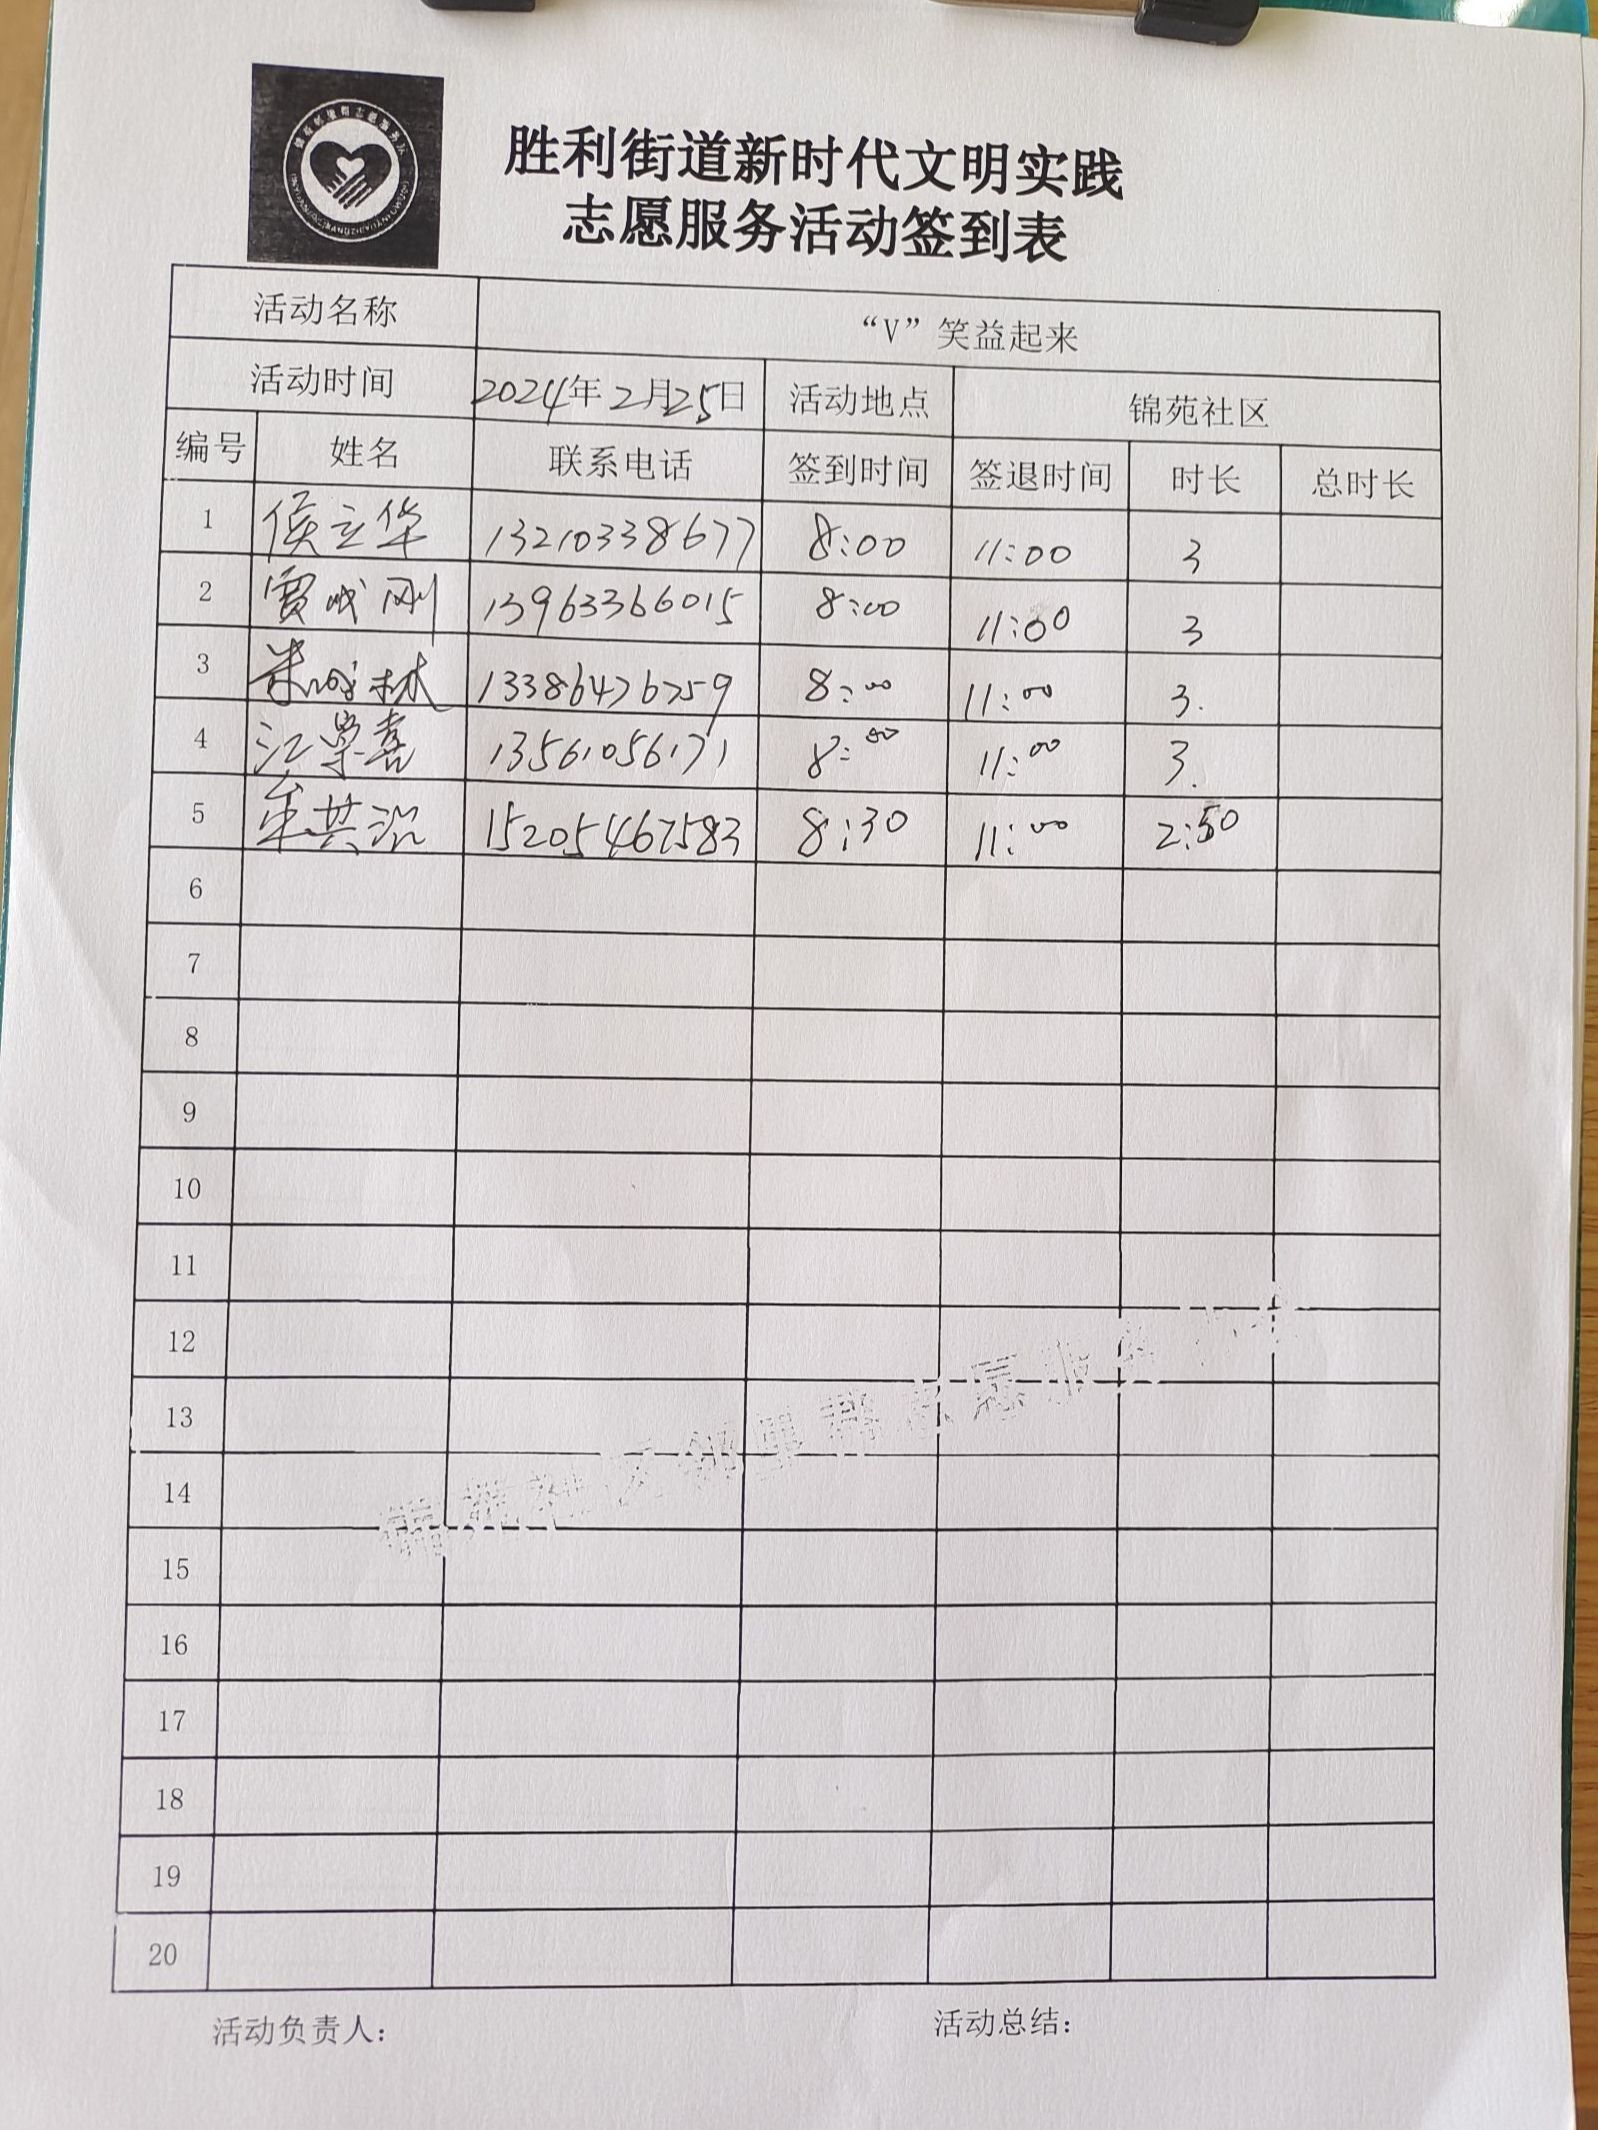 胜利街道新时代文明实践
志愿服务活动签到表
活动名称 “V”笑益起来
活动时间 2024年2月25日 活动地点 锦苑社区
编号 姓名 联系电话 签到时间 签退时间 时长 总时长
1 侯立华 13210338677 8:00 11:00 3
2 贾成刚 13963366015 8:00 11:00 3
3 林 13386476759 8:00 11:00 3.
4 江崇喜 13561056171 8:00 11:00 3.
5 牟其 15205467583 8:30 11:00 2:50
6
7
8
9
10
11
12
13
14
15
16
17
18
19
20
活动负责人： 活动总结：